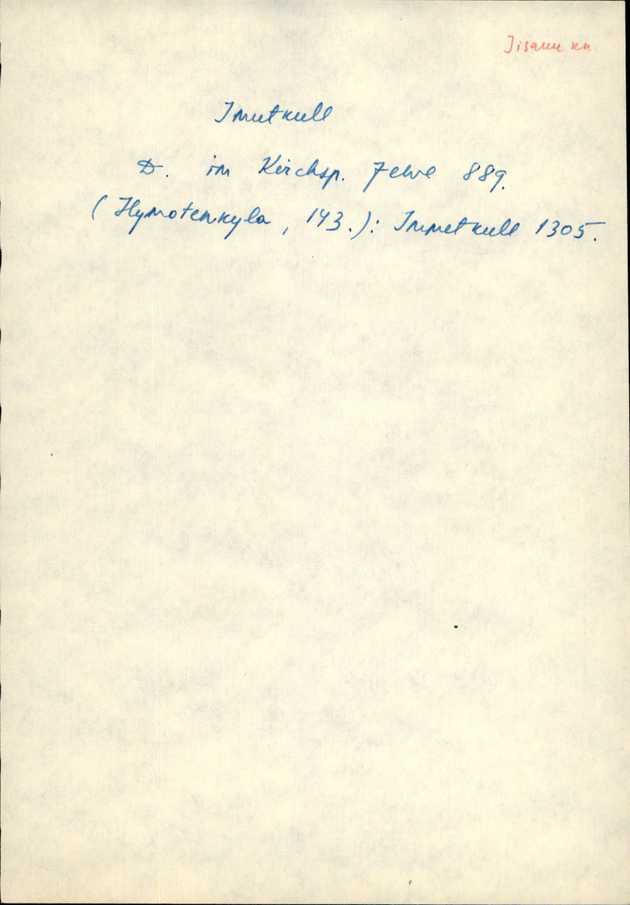 Iisaku kh
Imutkull
D. im Kirchsp. Jewe 889.
(Hymotenkyla, 143.): Immetkull 1305.